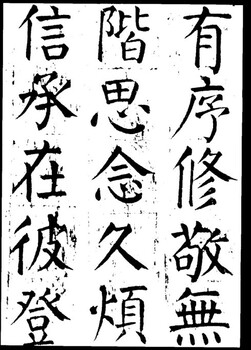 有序修敬無
階思念久煩
信承在彼登